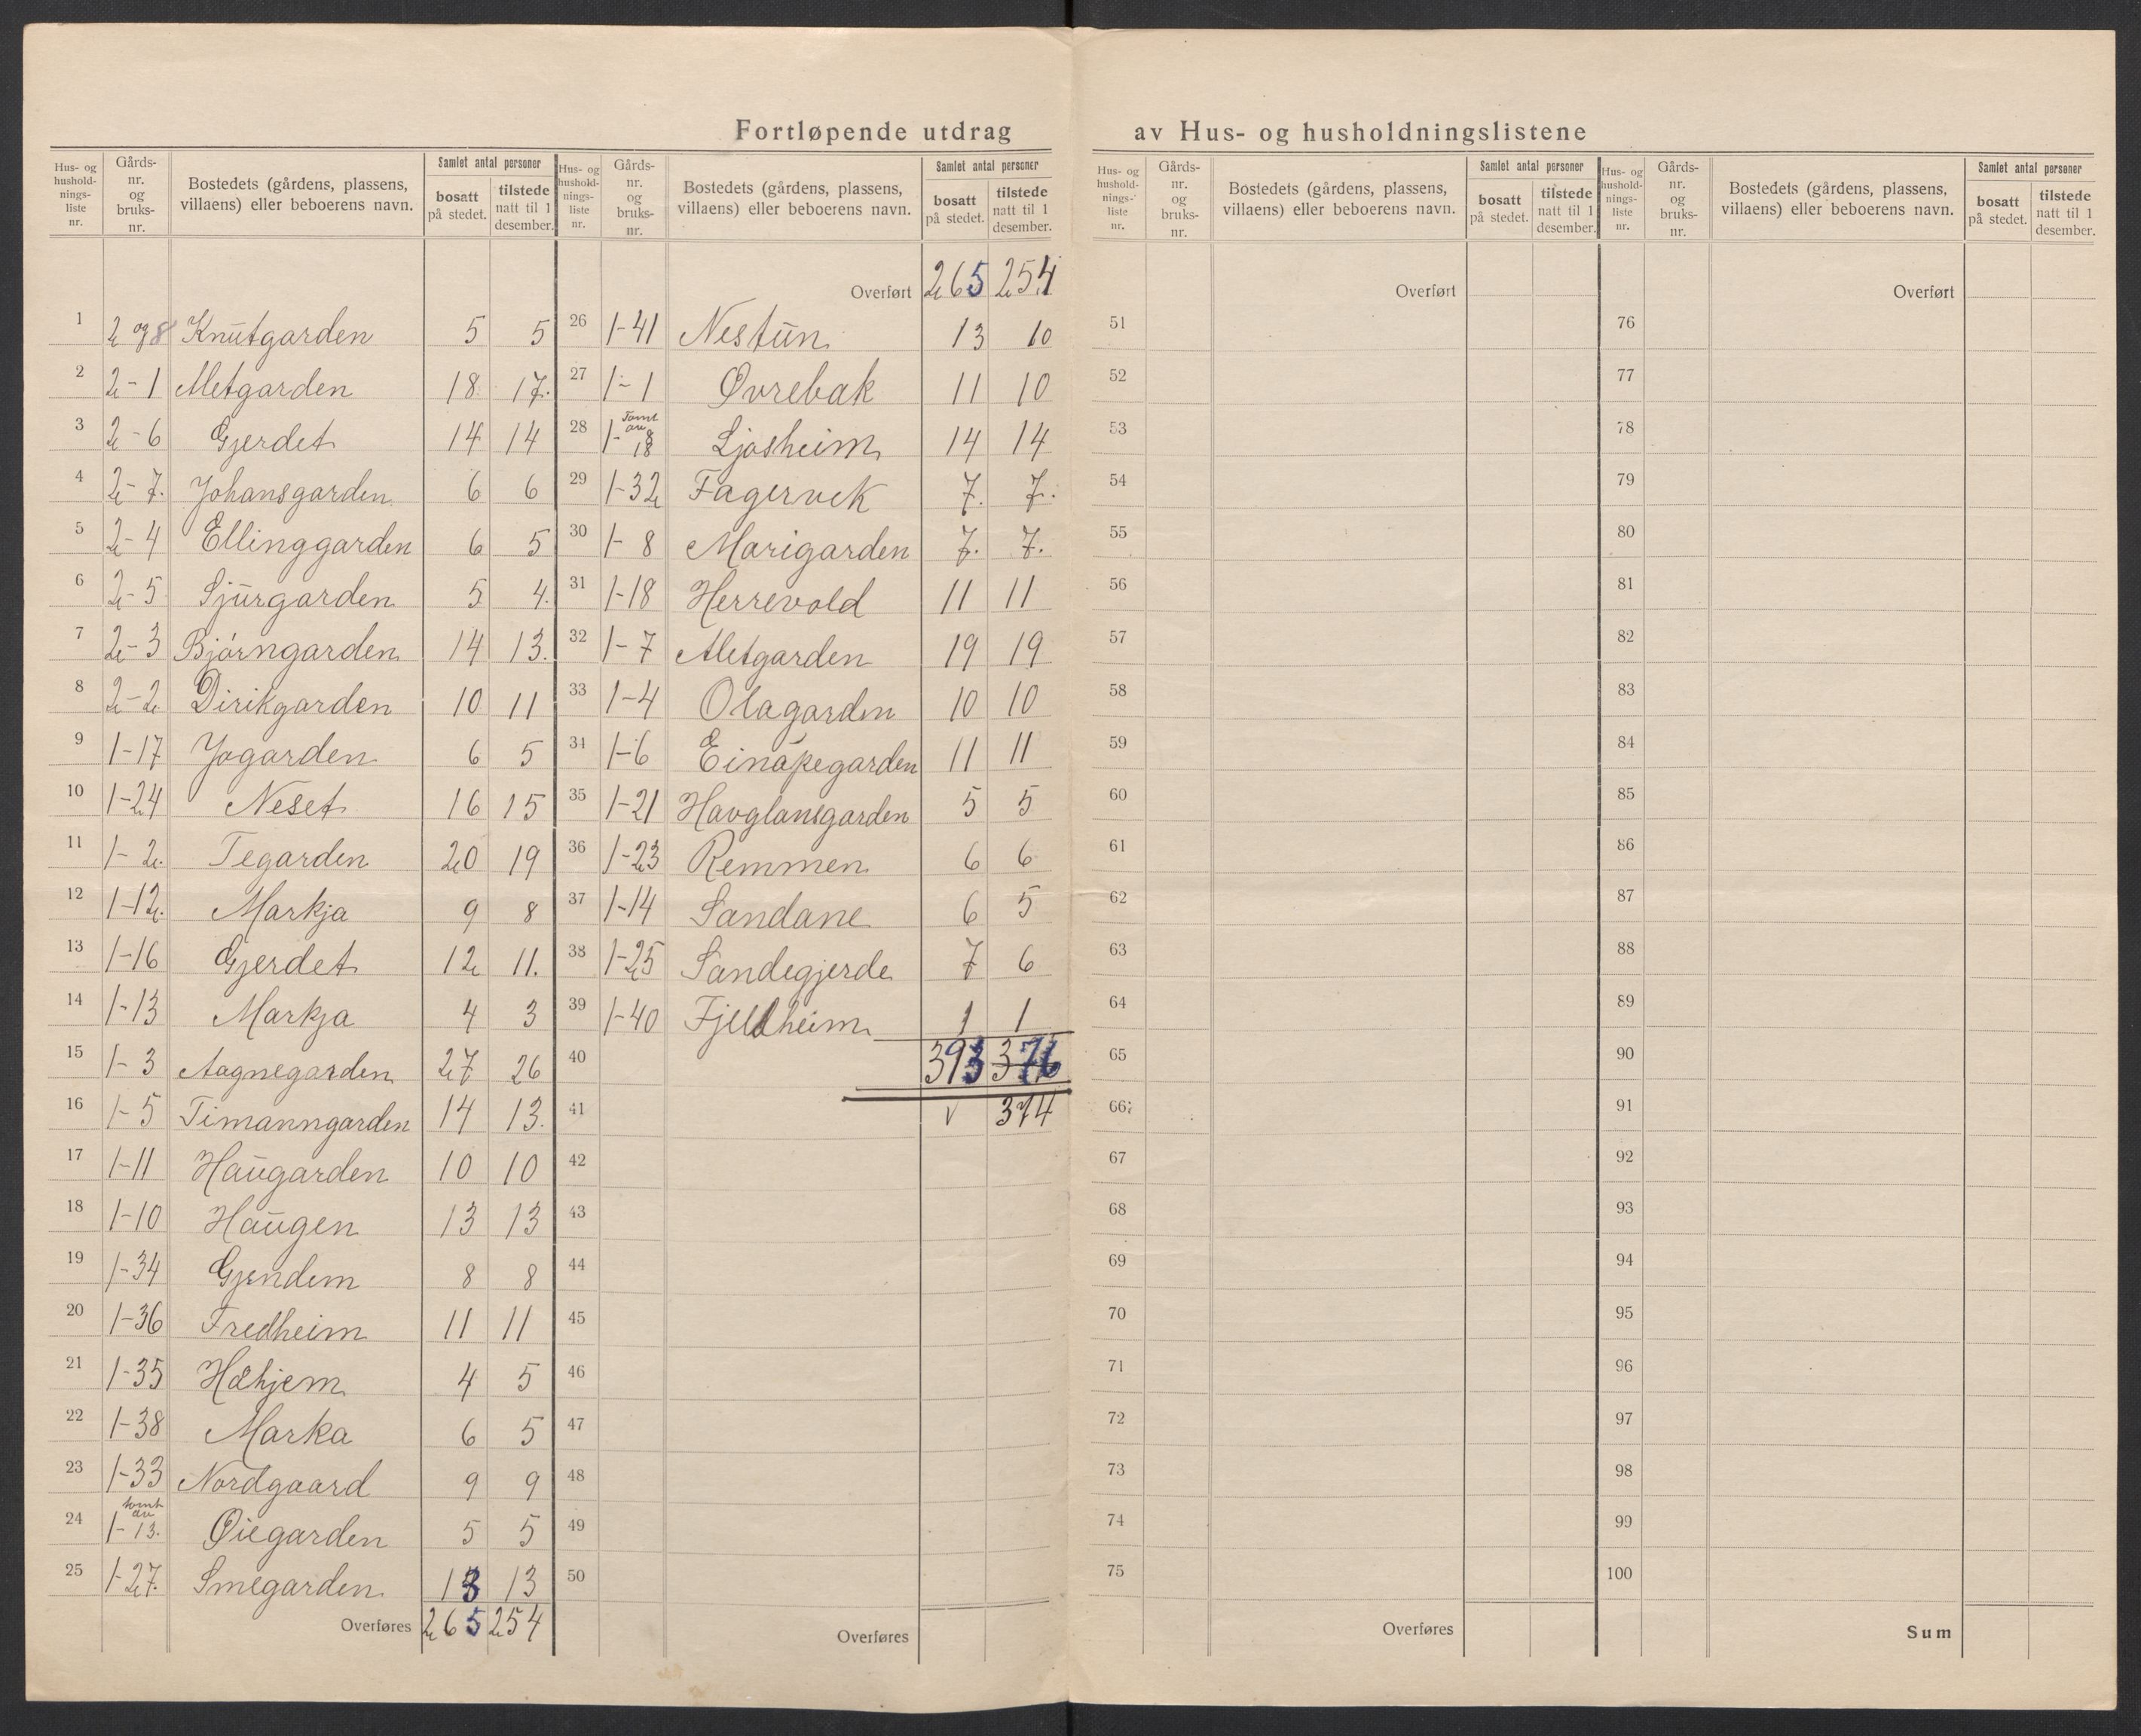 Fortløpende utdrag av Hus- og husholdningslistene
Hus- og hushold-nings-liste nr. Gårds-nr. og bruks-nr. Bostedets (gårdens, plassens, villaens) eller beboerens navn. Samlet antal personer bosatt på stedet. tilstede natt til 1 desember.
1 2 og 8 Knutgarden 5 5
2 2-1 Aletgarden 18 17.
3 2-6 Gjerdet 14 14
4 2-7. Johansgarden 6 6
5 2-4 Ellinggarden 6 5
6 2-5 Sjurgarden 5 4.
7 2-3 Bjørngarden 14 13.
8 2-2 Dirikgarden 10 11
9 1-17 Jogarden 6 5
10 1-24 Neset 16 15
11 1-2. Tegarden 20 19
12 1-12. Markja 9 8
13 1-16 Gjerdet 12 11.
14 1-13 Markja 4 3
15 1-3 Aagnegarden 27 26
16 1-5 Timanngarden 14 13.
17 1-11 Haugarden 10 10
18 1-10 Haugen 13 13
19 1-34 Gjendem 8 8
20 1-36 Fredheim 11 11
21 1-35 Håhjem 4 5
22 1-38 Marka 6 5
23 1-33 Nordgaard 9 9
24 tomt av 1-13. Øiegarden 5 5
25 1-27. Smegarden 13 13
Overføres 265 254
Hus- og hushold-nings-liste nr. Gårds-nr. og bruks-nr. Bostedets (gårdens, plassens, villaens) eller beboerens navn. Samlet antal personer bosatt på stedet. tilstede natt til 1 desember.
Overført 265 254
26 1-41 Nestun 13 10
27 1-1 Øvrebak 11 10
28 Tomt av 1-8 18 Ljosheim 14 14
29 1-32 Fagervik 7. 7.
30 1-8 Marigarden 7. 7.
31 1-18 Herrevold 11 11
32 1-7 Aletgarden 19 19
33 1-4 Olagarden 10 10
34 1-6 Einåpegarden 11 11
35 1-21 Havglansgarden 5 5
36 1-23 Remmen 6 6
37 1-14 Sandane 6 5
38 1-25 Sandegjerde 7 6
39 1-40 Fjellheim 1 1
40 393 376
41 v 374
42
43
44
45
46
47
48
49
50
Overføres
Hus- og hushold-nings-liste nr. Gårds-nr. og bruks-nr. Bostedets (gårdens, plassens, villaens) eller beboerens navn. Samlet antal personer bosatt på stedet. tilstede natt til 1 desember.
Overført
51
52
53
54
55
56
57
58
59
60
61
62
63
64
65
66
67
68
69
70
71
72
73
74
75
Overføres
Hus- og hushold-nings-liste nr. Gårds-nr. og bruks-nr. Bostedets (gårdens, plassens, villaens) eller beboerens navn. Samlet antal personer bosatt på stedet. tilstede natt til 1 desember.
Overført
76
77
78
79
80
81
82
83
84
85
86
87
88
89
90
91
92
93
94
95
96
97
98
99
100
Sum